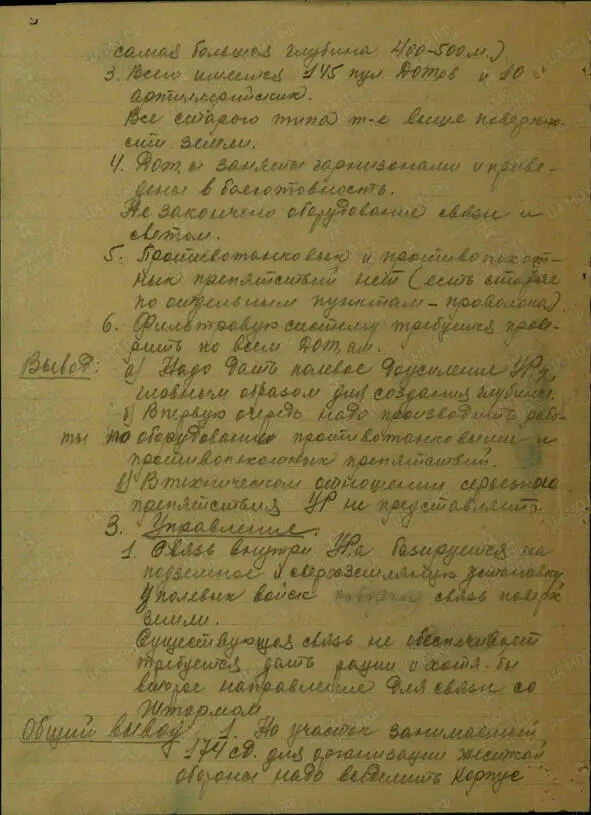 самая большая глубина 400-500 м.)
3. Всего имеется 145 пул. Дотов и 10
артиллерийских.
Все старого типа т-е выше поверхно-
сти земли.
4. Доты заняты гарнизонами и приве-
дены в боеготовность.
Не закончено оборудование связи и
светом.
5. Противотанковых и противопехот-
ных препятствий нет (есть старые
по отдельным пунктам - проволока)
6. Фильтровую систему требуется прове-
рить по всем Дотам.
Вывод: а) Надо дать полевое доусиление УРу,
главным образом для создания глубины.
б) В первую очередь надо производить рабо-
ты по оборудованию противотанковыми и
противопехотных препятствий.
в) В техническом отношении серьезного
препятствия УР не представляет.
3. Управление.
1. Связь внутри УРа базируется на
подземное и сверхземляную установку
у полевых войск связь поверх
земли.
Существующая связь не обеспечивает
требуется дать рации и хотя-бы
второе направление для связи со
Штармом
Общий вывод 1. На участок занимаемый
174 сд. для организации жесткой
обороны надо выделить Корпус